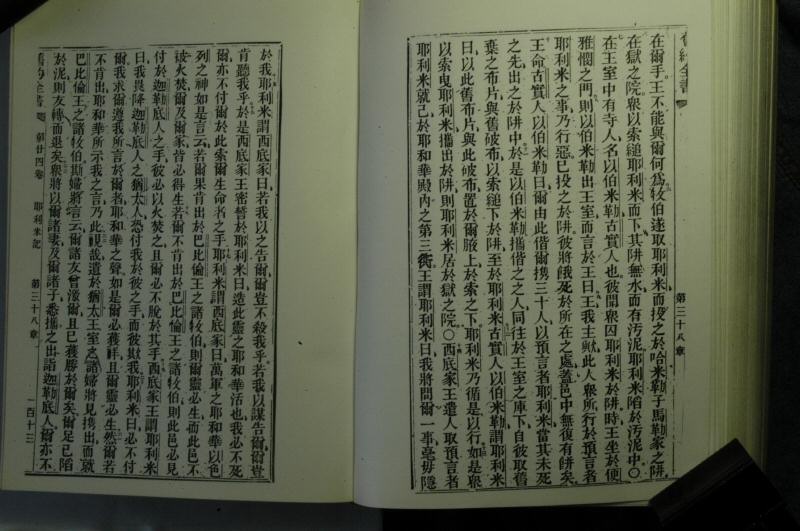 舊約全書
第三十八章
在爾手王不能與爾何爲牧伯遂取耶利米而投之於哈米勒子馬勒家之阱
在獄之院衆以索縋耶利米而下其阱無水而有汚泥耶利米陷於汚泥中〇
在王室中有寺人名以伯米勒古實人也彼聞衆囚耶利米於阱時王坐於便
雅憫之門則以伯米勒出王室而言於王曰王我主歟此人衆所行於預言者
耶利米之事乃行惡已投之於阱彼將餓死於所在之處蓋邑中無復有餅矣
王命古實人以伯米勒曰爾由此偕爾攜三十人以預言者耶利米當其未死
之先出之於阱中於是以伯米勒攜偕之之人同往於王室之庫下自彼取舊
棄之布片與舊破布以索縋下於阱至於耶利米古實人以伯米勒謂耶利米
曰以此舊布片與此破布置於爾腋上於索之下耶利米乃循是以行如是衆
以索曳耶利米攜出於阱則耶利米居於獄之院〇西底家王遣人取預言者
耶利米就己於耶和華殿內之第三衖王謂耶利米曰我將問爾一事毫毋隱
於我耶利米謂西底家曰若我以之告爾爾豈不殺我乎若我以謀告爾爾豈
肯聽我乎於是西底家王密誓於耶利米曰造此靈之耶和華活也我必不死
爾亦不付爾於此索爾生命者之手耶利米謂西底家曰萬軍之耶和華以色
列之神如是言云若爾果肯出於巴比倫王之諸牧伯則爾靈必生而此邑不
被火焚爾及爾家皆必得生若爾不肯出於巴比倫王之諸牧伯則此邑必見
付於迦勒底人之手彼必以火焚之且爾必不脫於其手西底家王謂耶利米
曰我畏降迦勒底人之猶太人恐付我於彼之手而彼欺我耶利米曰必不付
爾我求爾遵我所言於爾者耶和華之聲如是爾必獲祥且爾靈必生然爾若
不肯出耶和華所示我之言乃此視哉遺於猶太王室之諸婦將見攜出而就
巴比倫王之諸牧伯斯婦將言云爾諸友曾激爾且已獲勝於爾矣爾足已陷
於泥則友轉而退矣衆將以爾諸妻及爾諸子悉攜之出詣迦勒底人爾亦不
舊約全書
第廿四卷
耶利米記
第三十八章
一百十三